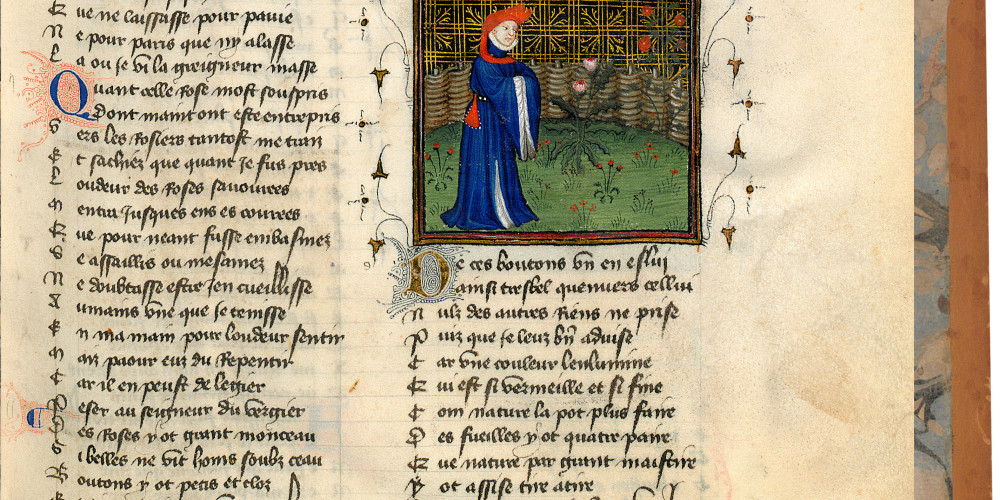 Q ue ne laissasse pour pauie
N e pour paris que ny alasse
L a ou Je vi la greigneur masse
Quant celle Rose most souspris
Dont maint ont este entrepris
V ers les Rosiers tantost me train
E t sachiez que quant Je fus pres
L oudeur des Roses sauourees
M entra Jusques ens es courees
Q ue pour neant fusse embasmez
S e assailliz ou mesamez
N e doubtasse estre Jen cueillisse
A umains vne que Je tenisse
E n ma main pour loudeur sentir
M aiz paour euz du Repentir
C ar il en peust de legier
P eser au seigneur du vergier
D es Roses y ot grant monceau
S i belles ne vit homs soubz ceau
B outons y ot petis et cloz
De ces boutons vn en eslui
ainsi tresbel quenuers cellui
N ulz des autres Riens ne prise
P uiz que Je leuz bn aduise
C ar vne couleur lenlumine
Q ui est si vermeille et si fine
C om nature la pot plus faire
D es fueilles y ot quatre paire
Q ue nature par grant maistire
Y ot assise tire a tire